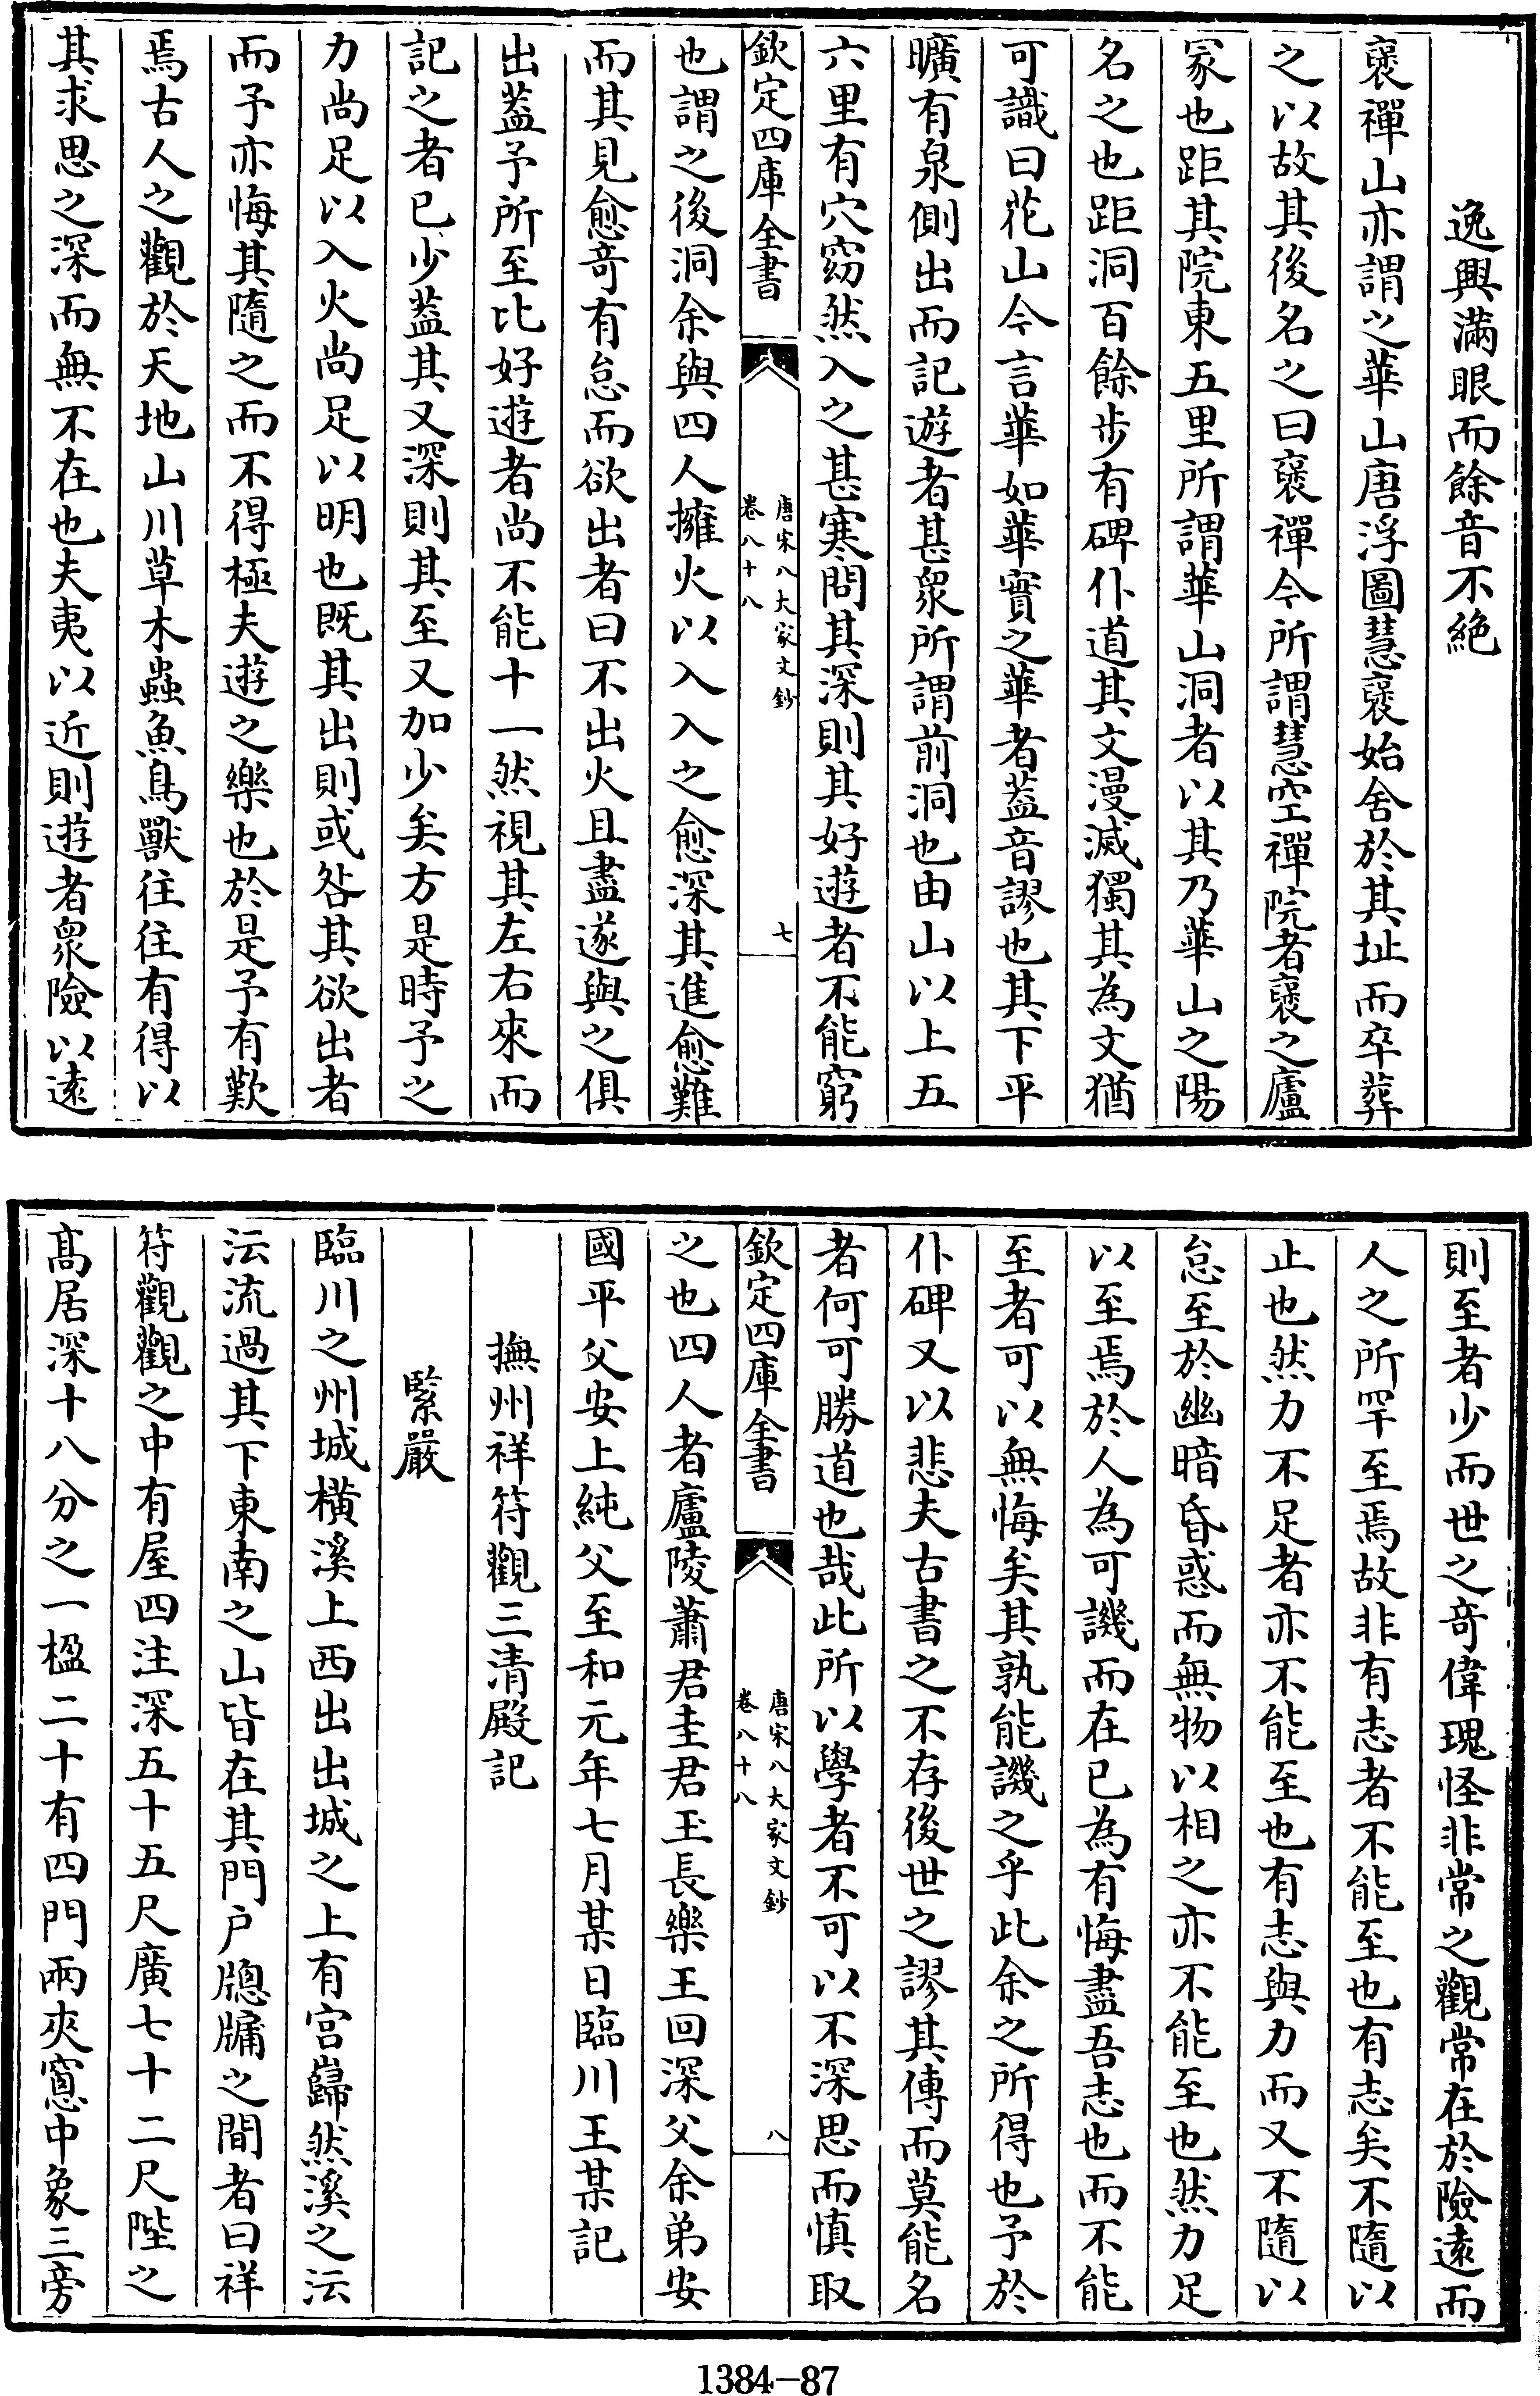 逸興滿眼而餘音不絶
襃禪山亦謂之華山唐浮圖慧襃始舍於其址而卒葬
之以故其後名之曰襃禪今所謂慧空禪院者襃之廬
冢也距其院東五里所謂華山洞者以其乃華山之陽
名之也距洞百餘步有碑仆道其文漫滅獨其為文猶
可識曰花山今言華如華實之華者葢音謬也其下平
曠有泉側出而記遊者甚衆所謂前洞也由山以上五
六里有穴窈然入之甚寒問其深則其好遊者不能窮
欽定四庫全書
唐宋八大家文鈔
卷八十八
七
也謂之後洞余與四人擁火以入入之愈深其進愈難
而其見愈奇有怠而欲出者曰不出火且盡遂與之俱
出葢予所至比好遊者尚不能十一然視其左右來而
記之者已少葢其又深則其至又加少矣方是時予之
力尚足以入火尚足以明也既其出則或咎其欲出者
而予亦悔其隨之而不得極夫遊之樂也於是予有歎
焉古人之觀於天地山川草木蟲魚鳥獸往往有得以
其求思之深而無不在也夫夷以近則遊者衆險以遠
則至者少而世之奇偉瑰怪非常之觀常在於險遠而
人之所罕至焉故非有志者不能至也有志矣不隨以
止也然力不足者亦不能至也有志與力而又不隨以
怠至於幽暗昏惑而無物以相之亦不能至也然力足
以至焉於人為可譏而在已為有悔盡吾志也而不能
至者可以無悔矣其孰能譏之乎此余之所得也予於
仆碑又以悲夫古書之不存後世之謬其傳而莫能名
者何可勝道也哉此所以學者不可以不深思而慎取
欽定四庫全書
唐宋八大家文鈔
卷八十八
八
之也四人者廬陵蕭君圭君玉長樂王回深父余弟安
國平父安上純父至和元年七月某日臨川王某記
撫州祥符觀三清殿記
緊嚴
臨川之州城橫溪上西出出城之上有宫巋然溪之沄
沄流過其下東南之山皆在其門户牕牖之間者曰祥
符觀觀之中有屋四注深五十五尺廣七十二尺陛之
髙居深十八分之一楹二十有四門兩夾窻中象三旁
1384-87